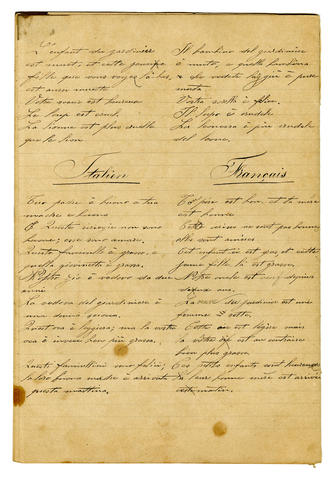 L'enfant du jardinier
est muet, et cette jeune
fille que vous voyez là-bas,
est aussi muette
Votre soeur est heureuse
Le loup est cruel
La lionne est plus cruelle
que le lion
Il bambino del giardiniere
è muto, e quella bambina
che vedete laggiù è pure
muta
Vostra sorella è felice
Il lupo è crudele
La leonessa è più crudele
del leone.
Italien
Français
Tuo padre è buono e tua
madre è buona
Queste non sono
buone; esse sono amare.
Questo fanciullo è grasso, e
quella giovinetta è grassa.
Nostro zio è vedovo da due
anni
La vedova del giardiniere è
una donna
è leggera; ma la vostra
è invece ben più grassa.
Questi fanciullini sono felici;
la loro buona madre è arrivata
questa mattina.
Ton père est bon, et ta mère
est bonne
Cette ne sont pas bonnes
elles sont amères
Cet enfant est gras et cette
jeune fille là est grasse
Notre oncle est veuf depuis
deux ans.
La veuve du jardinier est une
femme
Cette est légère mais
la vôtre est au contraire
bien plus grasse
Ces petits enfants sont heureux
leur bonne mère est arrivée
ce matin.